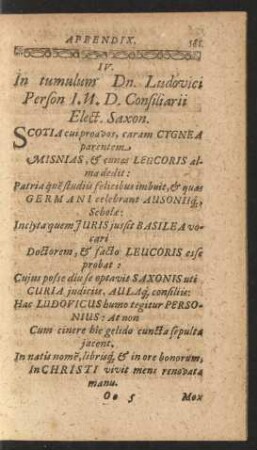 APPENDIX.
IV.
In tumulum Dn. Ludovici
Person I. U. D. Consiliarii
Elect. Saxon.
SCOTIA cui proavos, caram CYGNEA
parentem
MISNIAS, & cunas LEUCORIS al-
ma dedit:
Patria quẽ studiis felicibus imbuit, & quas
GERMANI celebrant AUSONIIq́,
Scholæ:
Inclyta quem JURIS jussit BASILEA vo-
cari
Doctorem, & facto LEUCORIS esse
probat:
Cujus posse diu se optavit SAXONIS uti
CURIA judiciis, AULAq́, consiliis:
Hac LUDOVICUS humo tegitur PERSO-
NIUS: At non
Cum cinere hic gelido cuncta sepulta
jacent.
In natis nomẽ, librisq́, & in ore honorum,
In CHRISTI vivit mens renovata
manu.
Oo 5 Mox